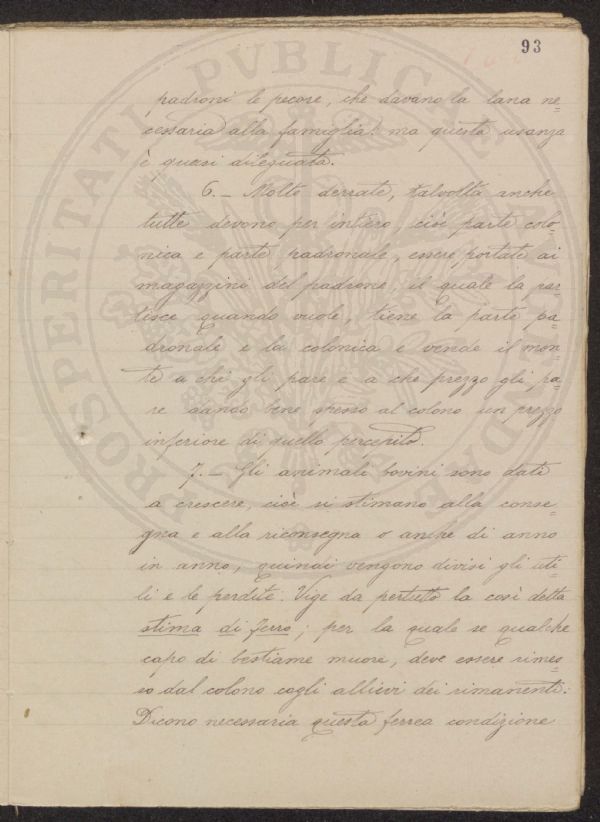 93
padroni le pecore, che davano la lana ne=
cessaria alla famiglia: ma questa usanza
è quasi dileguata.
6. _ Molte derrate, talvolta anche
tutte devono per intiero, cioè parte colo=
nica e parte padronale, essere portate ai
magazzini del padrone, il quale la par=
tisce quando vuole, tiene la parte pa=
dronale e la colonica e vende il mon=
te a chi gli pare e a che prezzo gli pa=
re dando bene spesso al colono un prezzo
inferiore di quello percepito.
7. _ Gli animali bovini sono dati
a crescere, cioè si stimano alla conse=
gna e alla riconsegna o anche di anno
in anno, quindi vengono divisi gli uti=
li e le perdite. Vige da pertutto la così detta
stima di ferro; per la quale se qualche
capo di bestiame muore, deve essere rimes=
so dal colono cogli allievi dei rimanenti.
Dicono necessaria questa ferrea condizione
PROSPERITATI PVBLICAE